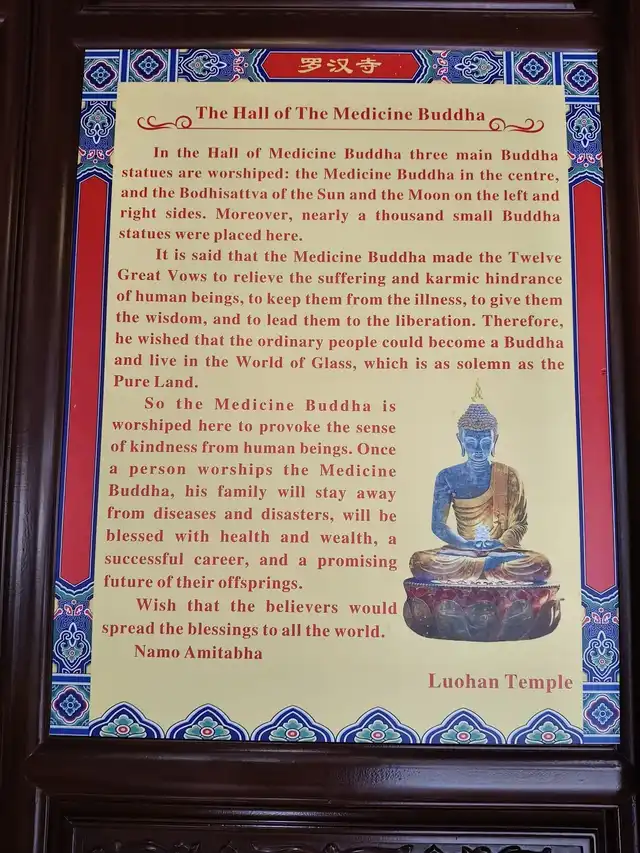 罗汉寺
The Hall of The Medicine Buddha
In the Hall of Medicine Buddha three main Buddha
statues are worshiped: the Medicine Buddha in the centre,
and the Bodhisattva of the Sun and the Moon on the left and
right sides. Moreover, nearly a thousand small Buddha
statues were placed here.
It is said that the Medicine Buddha made the Twelve
Great Vows to relieve the suffering and karmic hindrance
of human beings, to keep them from the illness, to give them
the wisdom, and to lead them to the liberation. Therefore,
he wished that the ordinary people could become a Buddha
and live in the World of Glass, which is as solemn as the
Pure Land.
So the Medicine Buddha is
worshiped here to provoke the sense
of kindness from human beings. Once
a person worships the Medicine
Buddha, his family will stay away
from diseases and disasters, will be
blessed with health and wealth, a
successful career, and a promising
future of their offsprings.
Wish that the believers would
spread the blessings to all the world.
Namo Amitabha
Luohan Temple